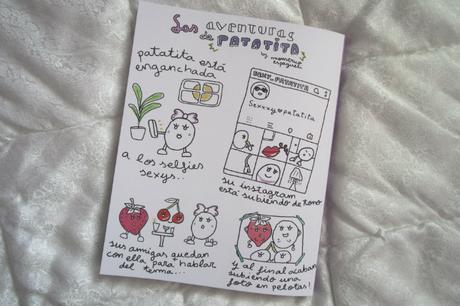 Las aventuras
de PATATITA
by
patatita está
enganchada
a los selfies
sexys...
SEXY_PATATITA
Sexxxy♥patatita
su instagram
está subiendo de tono
sus amigas quedan
con ella para hablar
del tema...
Y al final acaban
subiendo una
foto en pelotas!